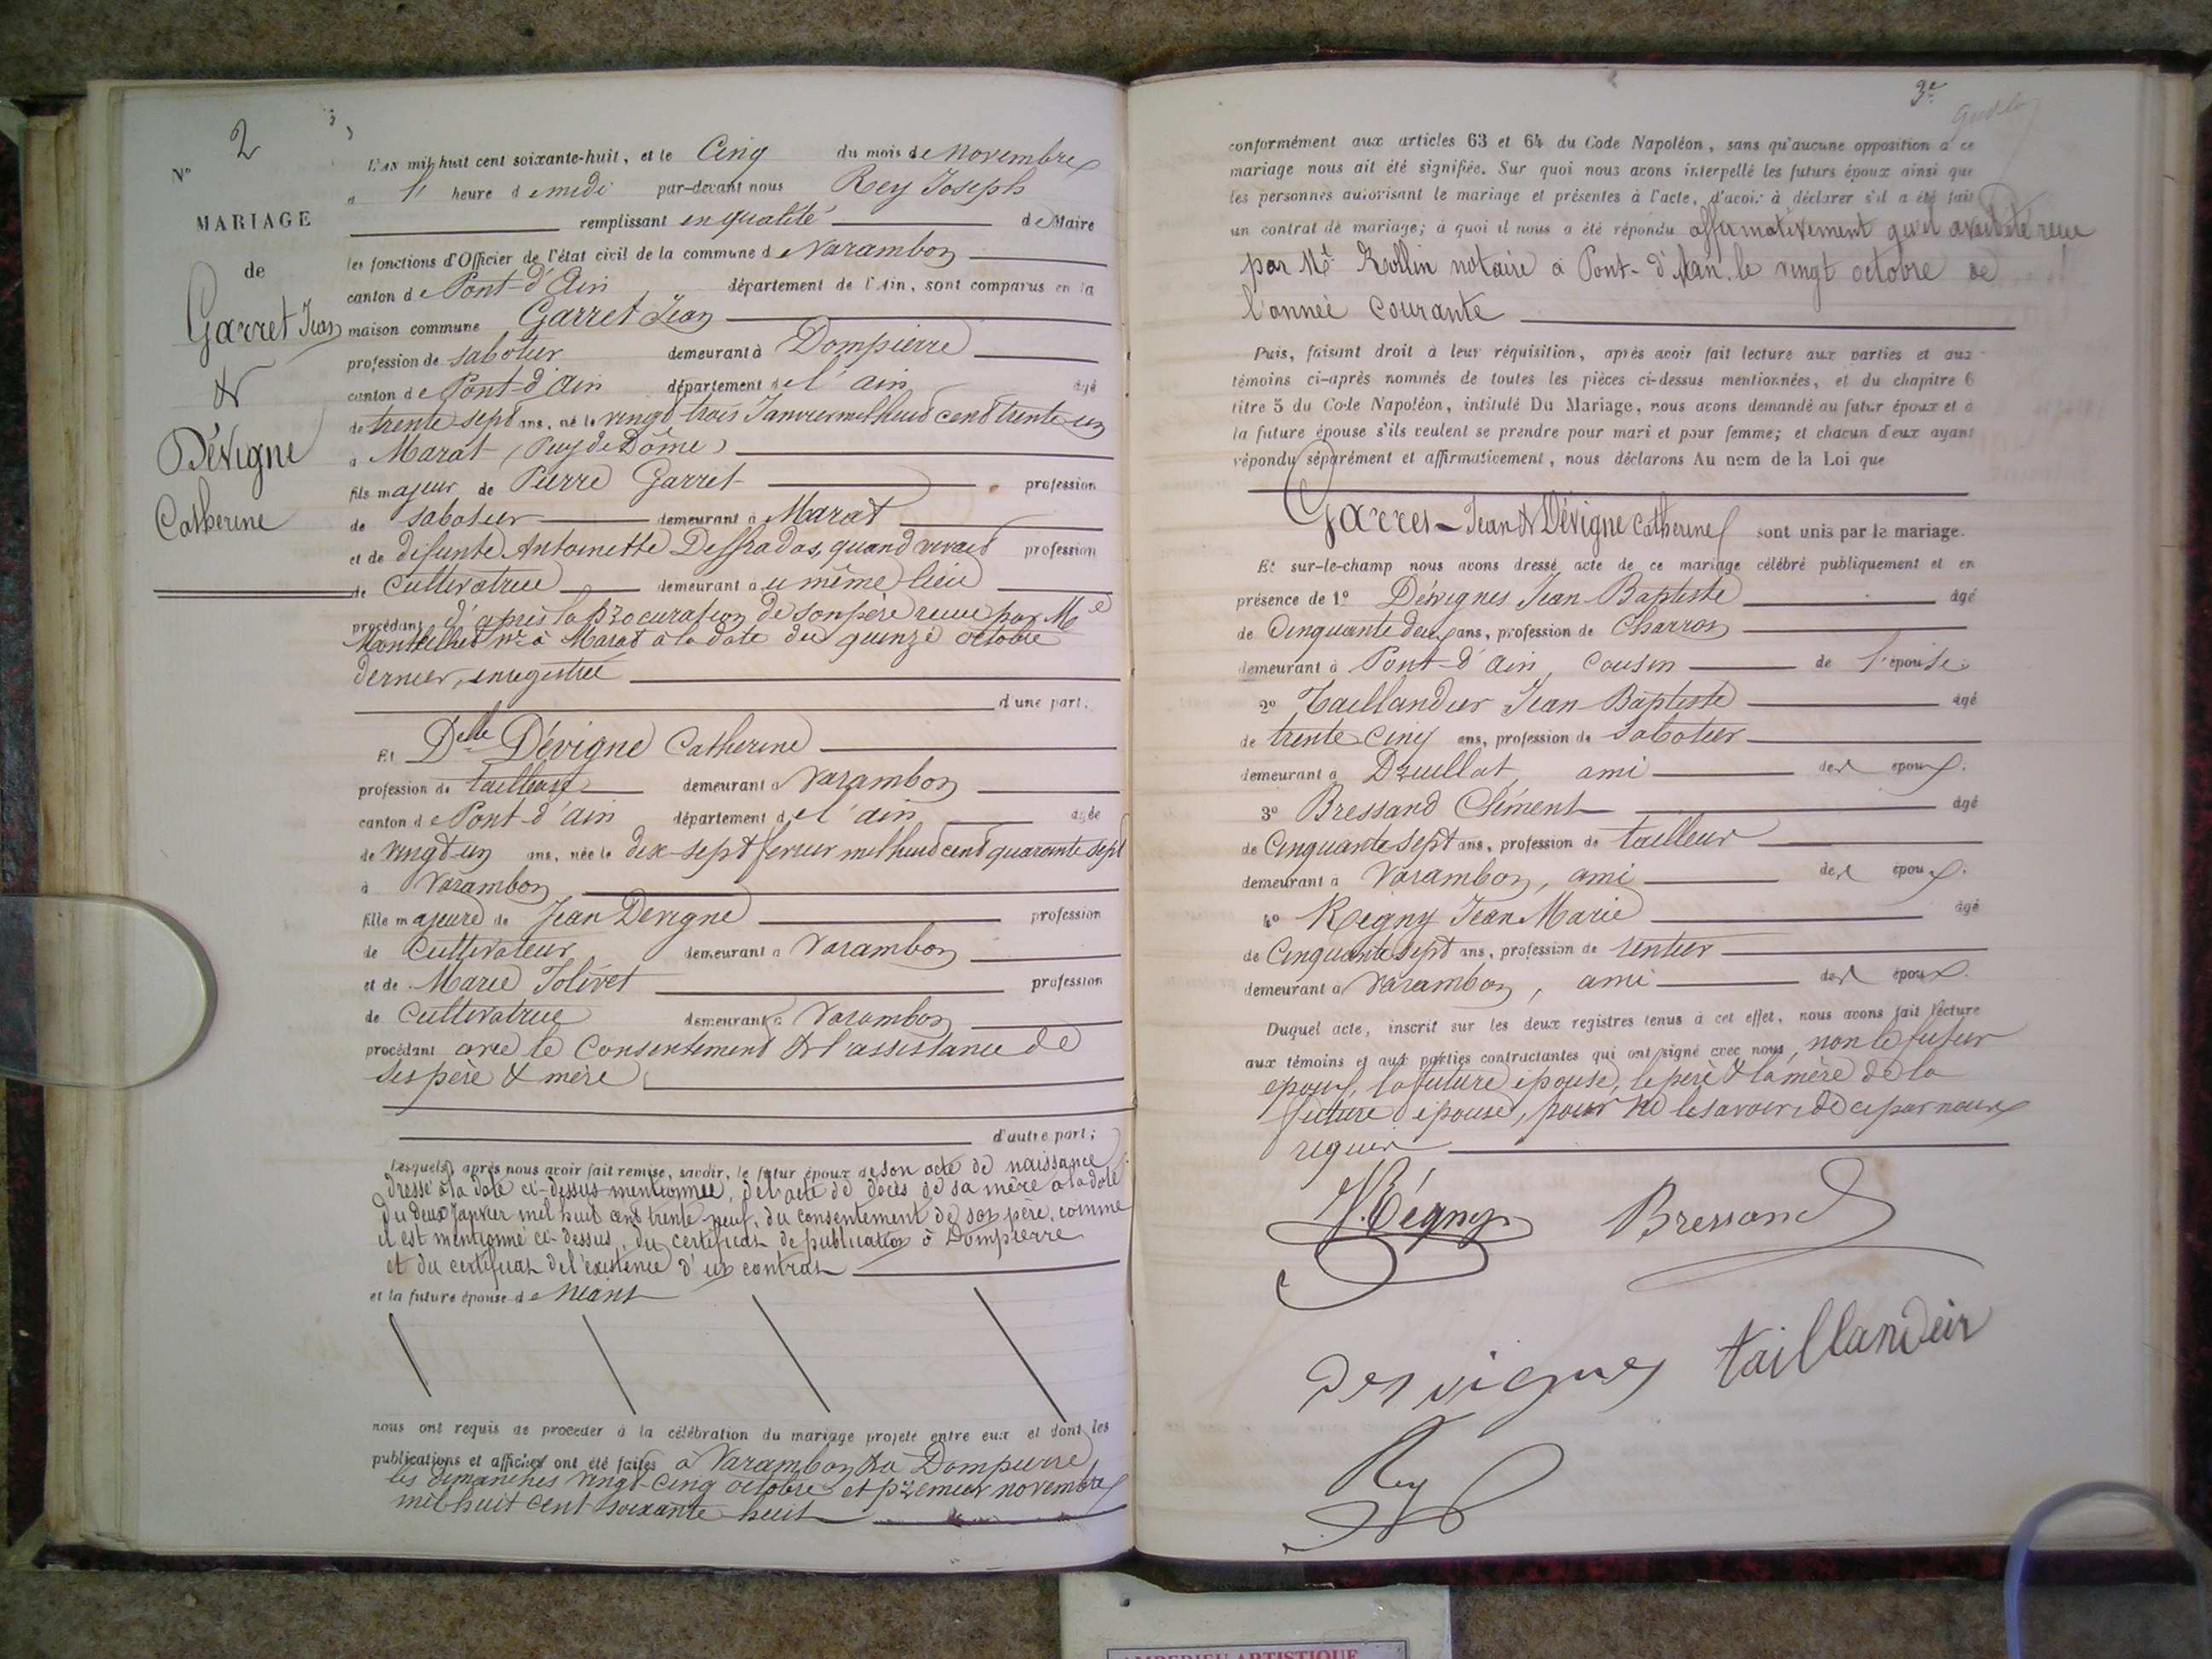 N° 2
MARIAGE
de
Garret Jean
&
Dévigne
Catherine
L'an mil huit cent soixante-huit, et le Cinq du mois de Novembre
à 1 heure de midi par-devant nous Rey Joseph
remplissant en qualité de Maire
les fonctions d'Officier de l'état civil de la commune de Varambon
canton de Pont-d'Ain département de l'Ain, sont comparus en la
maison commune Garret Jean
profession de sabotier demeurant à Dompierre
canton de Pont-d'Ain département de l'ain âgé
de trente sept ans, né le vingt trois Janvier mil huit cent trente un
à Marat (Puy de Dôme)
fils majeur de Pierre Garret profession
de sabotier demeurant à Marat
et de défunte Antoinette quand vivait profession
de Cultivatrice demeurant au même lieu
procédant d'après la Procuration de son père reçue par Me
nre à Marat à la date du quinze octobre
dernier, enregistrée
d'une part.
Et Delle Dévigne Catherine
profession de tailleuse demeurant à Varambon
canton de Pont-d'ain département de l'ain âgée
de vingt-un ans, née le dix-sept fevrier mil huit cent quarante sept
à Varambon
fille majeure de Jean Devigne profession
de Cultivateur demeurant à Varambon
et de Marie Jolivet profession
de Cultivatrice demeurant à Varambon
procédant avec le Consentement & l'assistance de
ses père & mère
d'autre part;
Lesquels, après nous avoir fait remise, savoir, le futur époux de son acte de naissance
dressé à la date ci-dessus mentionnée, de l'acte de décès de sa mère à la date
du deux Janvier mil huit cent trente neuf, du consentement de son père, comme
il est mentionné ci-dessus, du certificat de publication à Dompierre
et du certificat de l'existence d'un contrat
et la future épouse de Néant
nous ont requis de procéder à la célébration du mariage projeté entre eux et dont les
publications et affiches ont été faites à Varambon & à Dompierre
les dimanches vingt-cinq octobre et premier novembre
mil huit cent soixante huit
3e
conformément aux articles 63 et 64 du Code Napoléon, sans qu'aucune opposition à ce
mariage nous ait été signifiée. Sur quoi nous avons interpellé les futurs époux ainsi que
les personnes autorisant le mariage et présentes à l'acte, d'avoir à déclarer s'il a été fait
un contrat de mariage; à quoi il nous a été répondu affirmativement qu'il avait été reçu
par Mt Rollin notaire à Pont-d'Ain. le vingt octobre de
l'année courante
Puis, faisant droit à leur réquisition, après avoir fait lecture aux parties et aux
témoins ci-après nommés de toutes les pièces ci-dessus mentionnées, et du chapitre 6
titre 5 du Code Napoléon, intitulé Du Mariage, nous avons demandé au futur époux et à
la future épouse s'ils veulent se prendre pour mari et pour femme; et chacun d'eux ayant
répondu séparément et affirmativement, nous déclarons Au nom de la Loi que
Garret Jean & Dévigne Catherine sont unis par le mariage.
Et sur-le-champ nous avons dressé acte de ce mariage célébré publiquement et en
présence de 1° Dévignes Jean-Baptiste âgé
de Cinquante deux ans, profession de Charron
demeurant à Pont-d'ain, Cousin de l'épouse
2° Taillandier Jean-Baptiste âgé
de trente cinq ans, profession de Sabotier
demeurant à Druillat, ami des époux.
3° Bressand Clément âgé
de Cinquante sept ans, profession de tailleur
demeurant à Varambon, ami des époux.
4° Régny Jean Marie âgé
de Cinquante sept ans, profession de rentier
demeurant à Varambon, ami des époux.
Duquel acte, inscrit sur les deux registres tenus à cet effet, nous avons fait lecture
aux témoins et aux parties contractantes qui ont signé avec nous, non le futur
époux, la future épouse, le père & la mère de la
future épouse, pour ne le savoir de ce par nous
requis
Régny Bressand
Desvignes taillandier
Rey
AMBERIEU ARTISTIQUE